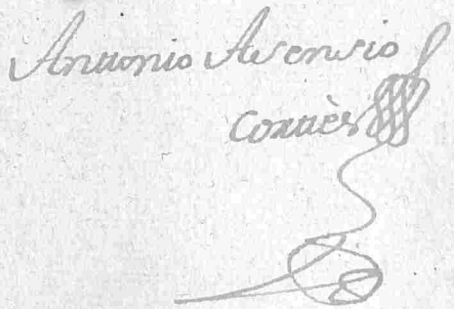 Antonio Asensio
Cortès